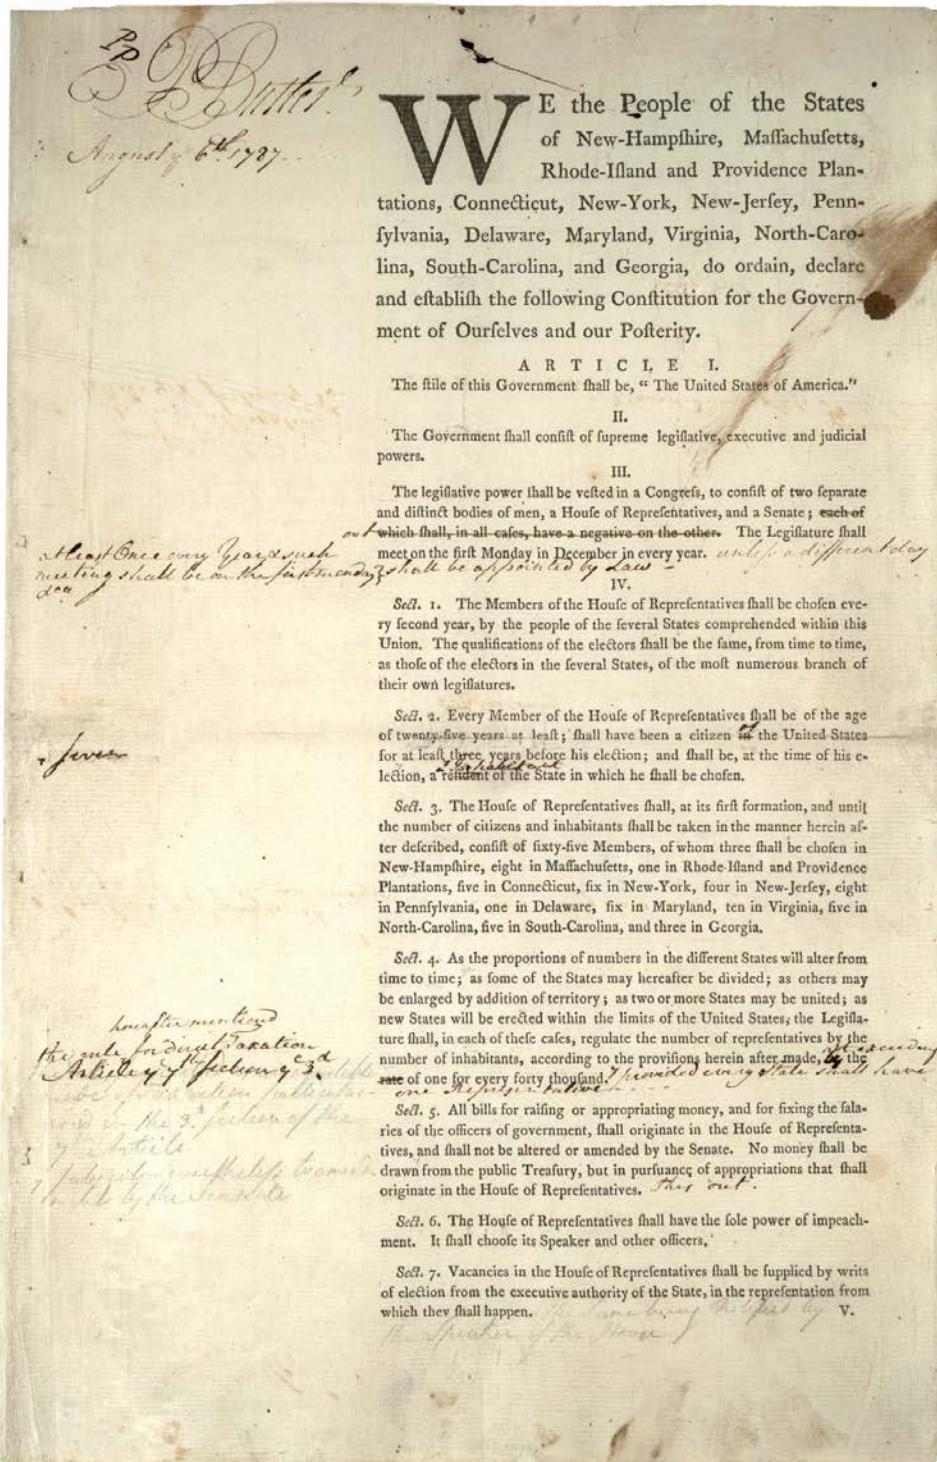 PP
P Butler
August yͤ 6th. 1787.
WE the People of the States
of New-Hampſhire, Maſſachuſetts,
Rhode-Iſland and Providence Plan-
tations, Connecticut, New-York, New-Jerſey, Penn-
ſylvania, Delaware, Maryland, Virginia, North-Caro-
lina, South-Carolina, and Georgia, do ordain, declare
and eſtabliſh the following Conſtitution for the Govern-
ment of Ourſelves and our Poſterity.
ARTICLE I.
The ſtile of this Government ſhall be, “ The United States of America.”
II.
The Government ſhall conſiſt of ſupreme legiſlative, executive and judicial
powers.
III.
The legiſlative power ſhall be veſted in a Congreſs, to conſiſt of two ſeparate
and diſtinct bodies of men, a Houſe of Repreſentatives, and a Senate ; each of
out which ſhall, in all caſes, have a negative on the other. The Legiſlature ſhall
at least Once every Year & such
meet on the firſt Monday in December in every year. unless a different day
meeting shall be on the first monday shall be appointed by Law
Dec
IV.
Sect. 1. The Members of the Houſe of Repreſentatives ſhall be choſen eve-
ry ſecond year, by the people of the ſeveral States comprehended within this
Union. The qualifications of the electors ſhall be the ſame, from time to time,
as thoſe of the electors in the ſeveral States, of the moſt numerous branch of
their own legiſlatures.
Sect. 2. Every Member of the Houſe of Repreſentatives ſhall be of the age
of twenty-five years at leaſt ; ſhall have been a citizen in of the United States
seven
for at leaſt three years before his election; and ſhall be, at the time of his e-
Inhabitant
lection, a reſident of the State in which he ſhall be choſen.
Sect. 3. The Houſe of Repreſentatives ſhall, at its firſt formation, and until
the number of citizens and inhabitants ſhall be taken in the manner herein af-
ter deſcribed, conſiſt of ſixty-five Members, of whom three ſhall be choſen in
New-Hampſhire, eight in Maſſachuſetts, one in Rhode-Iſland and Providence
Plantations, five in Connecticut, ſix in New-York, four in New-Jerſey, eight
in Pennſylvania, one in Delaware, ſix in Maryland, ten in Virginia, five in
North-Carolina, five in South-Carolina, and three in Georgia.
Sect. 4. As the proportions of numbers in the different States will alter from
time to time; as ſome of the States may hereafter be divided; as others may
be enlarged by addition of territory ; as two or more States may be united; as
new States will be erected within the limits of the United States, the Legiſla-
ture ſhall, in each of theſe caſes, regulate the number of repreſentatives by the
number of inhabitants, according to the proviſions herein after made, by not exceeding the
rate of one for every forty thouſand. provided every State shall have
one Representative
hereafter mentioned
the rule for direct Taxation
Article yͤ 7th section yͤ 3d
the 3d. section of the
7 Article
by the Senate
Sect. 5. All bills for raiſing or appropriating money, and for fixing the ſala-
ries of the officers of government, ſhall originate in the Houſe of Repreſenta-
tives, and ſhall not be altered or amended by the Senate. No money ſhall be
drawn from the public Treaſury, but in purſuance of appropriations that ſhall
originate in the Houſe of Repreſentatives. this out.
Sect. 6. The Houſe of Repreſentatives ſhall have the ſole power of impeach-
ment. It ſhall chooſe its Speaker and other officers.
Sect. 7. Vacancies in the Houſe of Repreſentatives ſhall be ſupplied by writs
of election from the executive authority of the State, in the repreſentation from
which they ſhall happen. the same being by
the Speaker of the House
V.